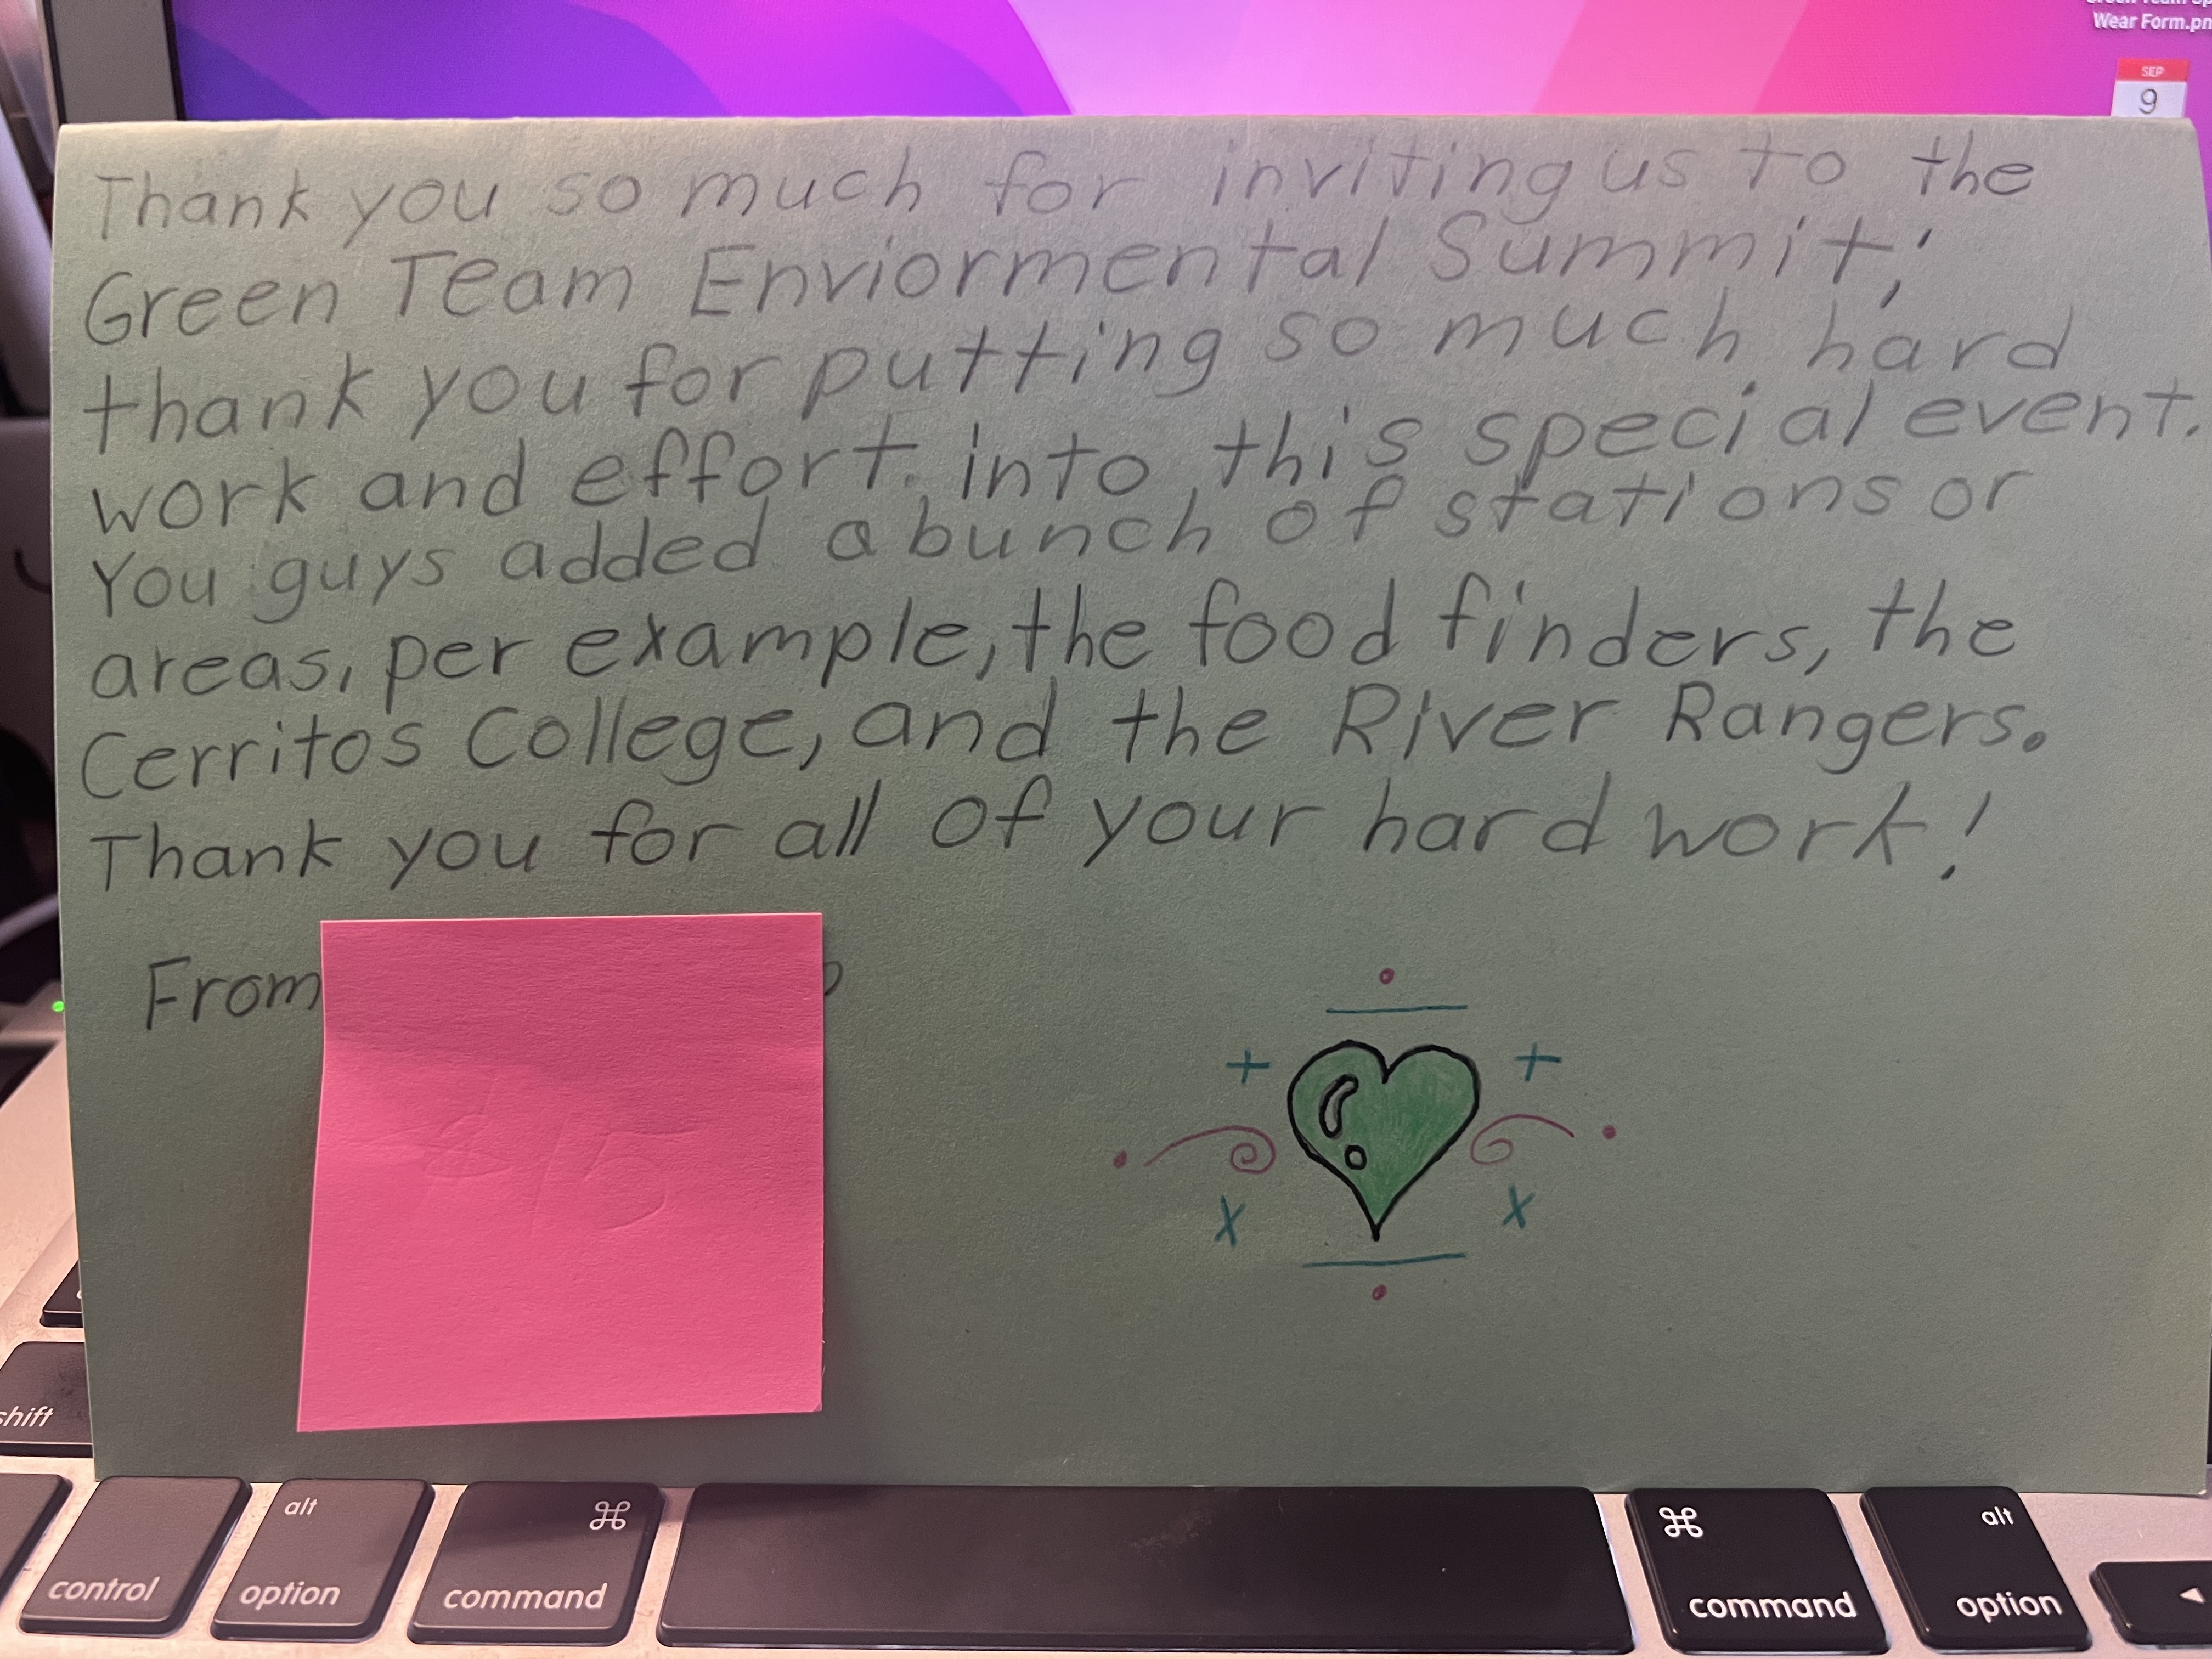 Wear Form.pn
SEP
9
Thank you so much for inviting us to the
Green Team Enviormental Summit;
thank you for putting so much hard
work and effort into this special event.
You guys added a bunch of stations or
areas, per example, the food finders, the
Cerritos College, and the River Rangers.
Thank you for all of your hard work!
From
shift
control
alt
option
⌘
command
⌘
command
alt
option